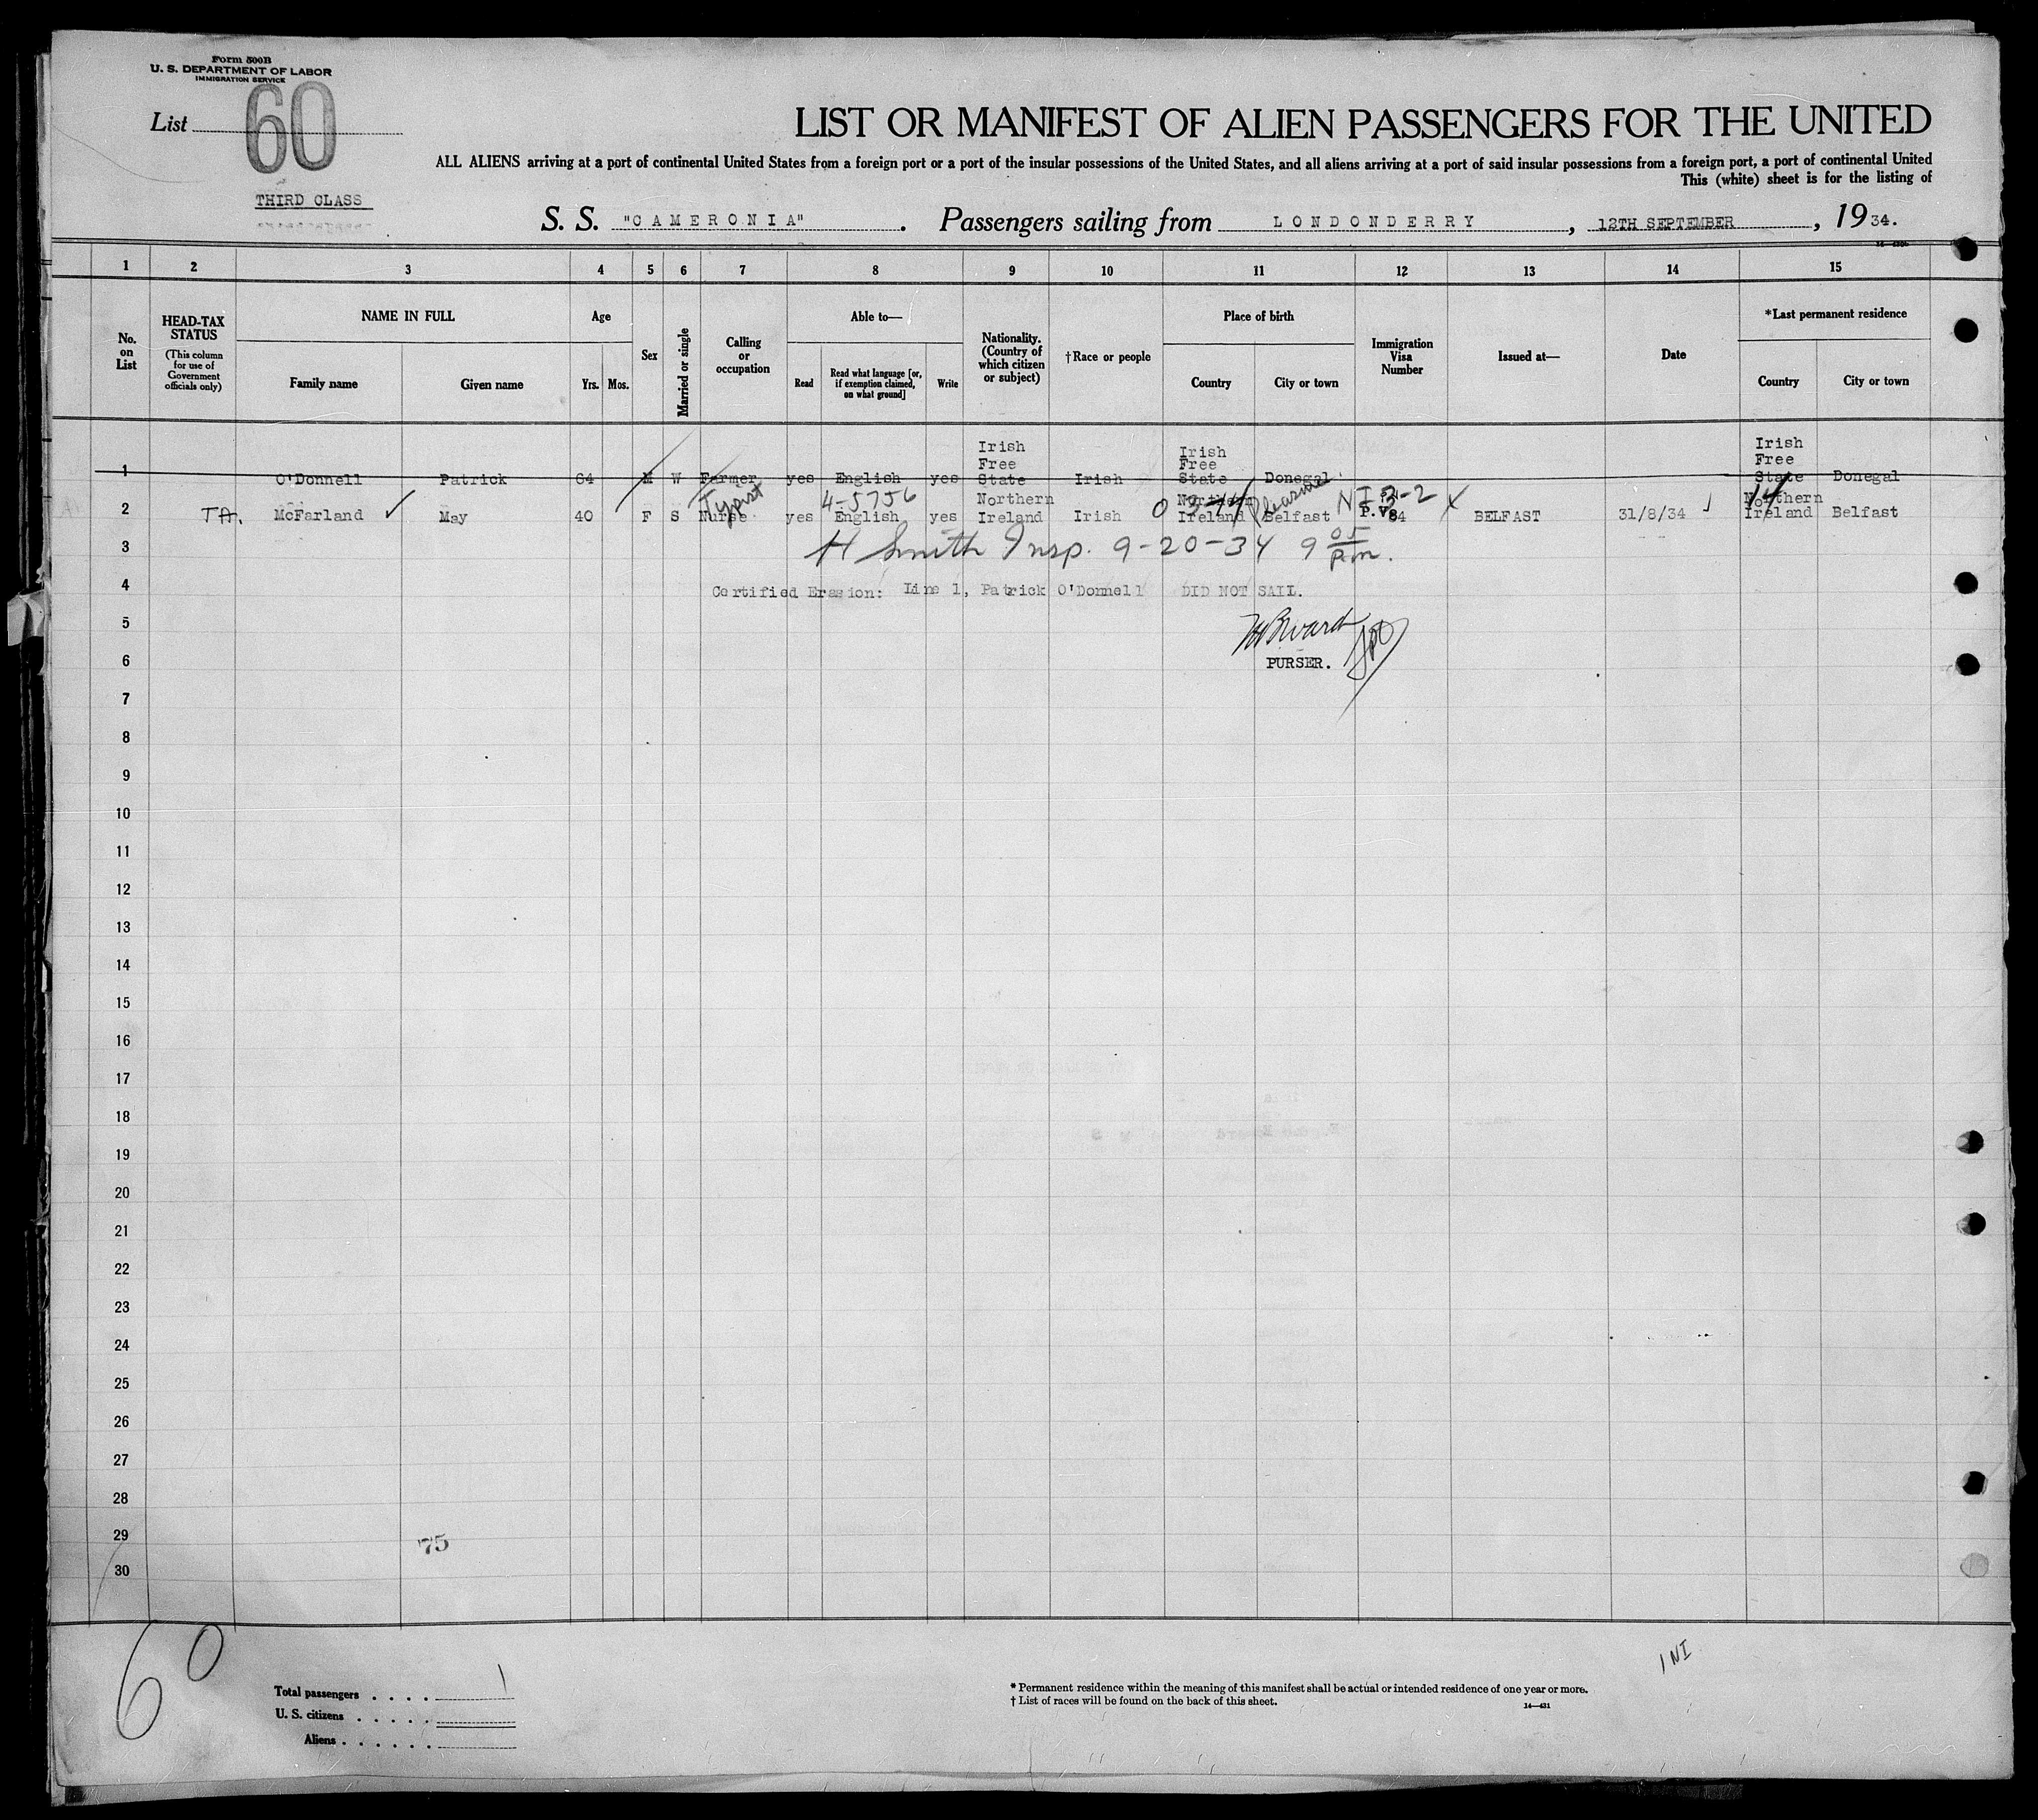 Form 500B
U. S. DEPARTMENT OF LABOR
IMMIGRATION SERVICE
List 60
THIRD CLASS
LIST OR MANIFEST OF ALIEN PASSENGERS FOR THE UNITED
ALL ALIENS arriving at a port of continental United States from a foreign port or a port of the insular possessions of the United States, and all aliens arriving at a port of said insular possessions from a foreign port, a port of continental United
This (white) sheet is for the listing of
S. S. "CAMERONIA". Passengers sailing from LONDONDERRY, 12TH SEPTEMBER, 1934.
1 2 3 4 5 6 7 8 9 10 11 12 13 14 15
No. on List
HEAD-TAX STATUS (This column for use of Government officials only)
NAME IN FULL
Family name Given name
Age
Yrs. Mos.
Sex
Married or single
Calling or occupation
Able to—
Read Read what language [or, if exemption claimed, on what ground] Write
Nationality. (Country of which citizen or subject)
†Race or people
Place of birth
Country City or town
Immigration Visa Number
Issued at—
Date
*Last permanent residence
Country City or town
1 O'Donnell Patrick 64 M W Farmer yes English yes Irish Free State Irish Irish Free State Donegal Irish Free State Donegal
Typist 4-5756 Pleasure N I 3-2 14
2 TA. McFarland ✓ May 40 F S Nurse yes English yes Northern Ireland Irish Northern Ireland Belfast P.V. 84 X BELFAST 31/8/34 Northern Ireland Belfast
3 H Smith Insp. 9-20-34 9 05 p.m.
4 Certified Erasion: Line 1, Patrick O'Donnell DID NOT SAIL.
5
6 PURSER.
7
8
9
10
11
12
13
14
15
16
17
18
19
20
21
22
23
24
25
26
27
28
29
75
30
60
1 NI
Total passengers . . . . 1
U. S. citizens . . . . .
Aliens . . . . . .
* Permanent residence within the meaning of this manifest shall be actual or intended residence of one year or more.
† List of races will be found on the back of this sheet.
14—431